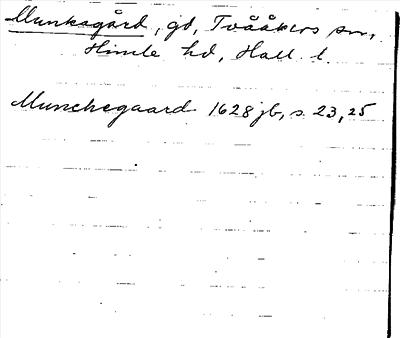 Munkagård, gd, Tvååkers sn,
Himle hd, Hall. l.
Munchegaard 1628 jb, s. 23, 25